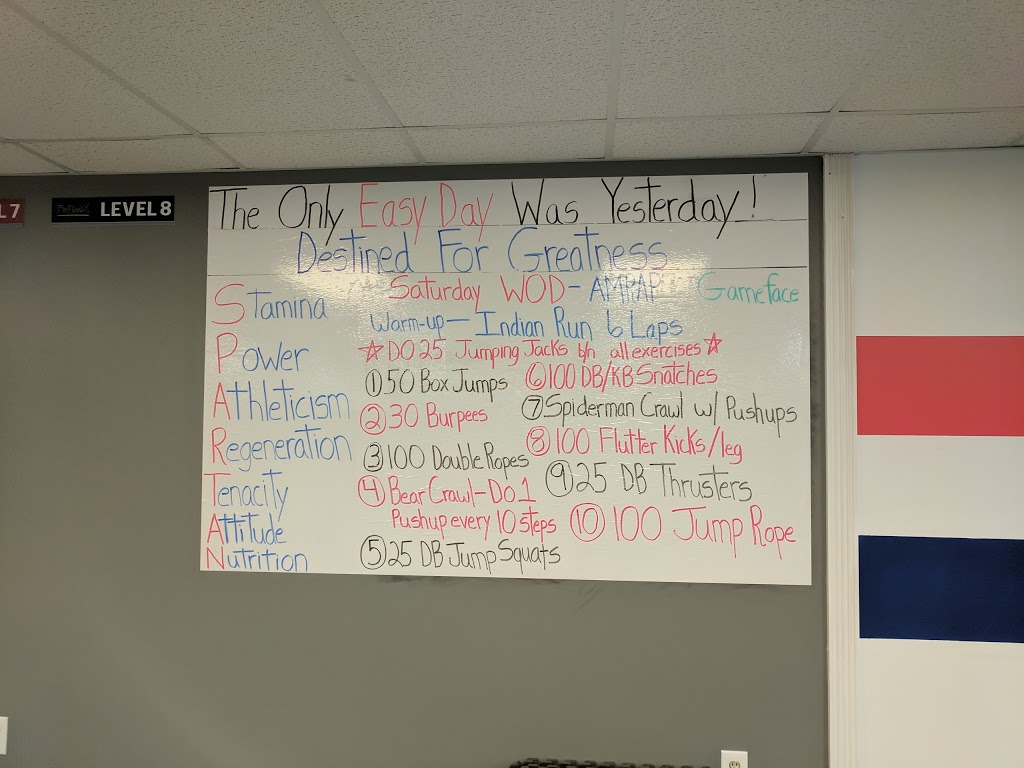 L7
LEVEL 8
The Only Easy Day Was Yesterday!
Destined For Greatness
Stamina
Power
Athleticism
Regeneration
Tenacity
Attitude
Nutrition
Saturday WOD - AMRAP Gameface
Warm-up - Indian Run 6 Laps
☆ DO 25 Jumping Jacks b/n all exercises ☆
① 50 Box Jumps
② 30 Burpees
③ 100 Double Ropes
④ Bear Crawl - Do 1
Pushup every 10 steps
⑤ 25 DB Jump Squats
⑥ 100 DB/KB Snatches
⑦ Spiderman Crawl w/ Pushups
⑧ 100 Flutter Kicks/leg
⑨ 25 DB Thrusters
⑩ 100 Jump Rope